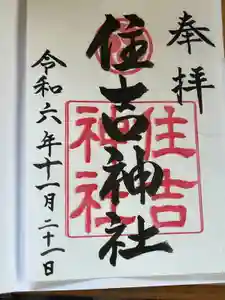 奉拝
住吉神社
住吉
神社
令和六年十一月二十一日